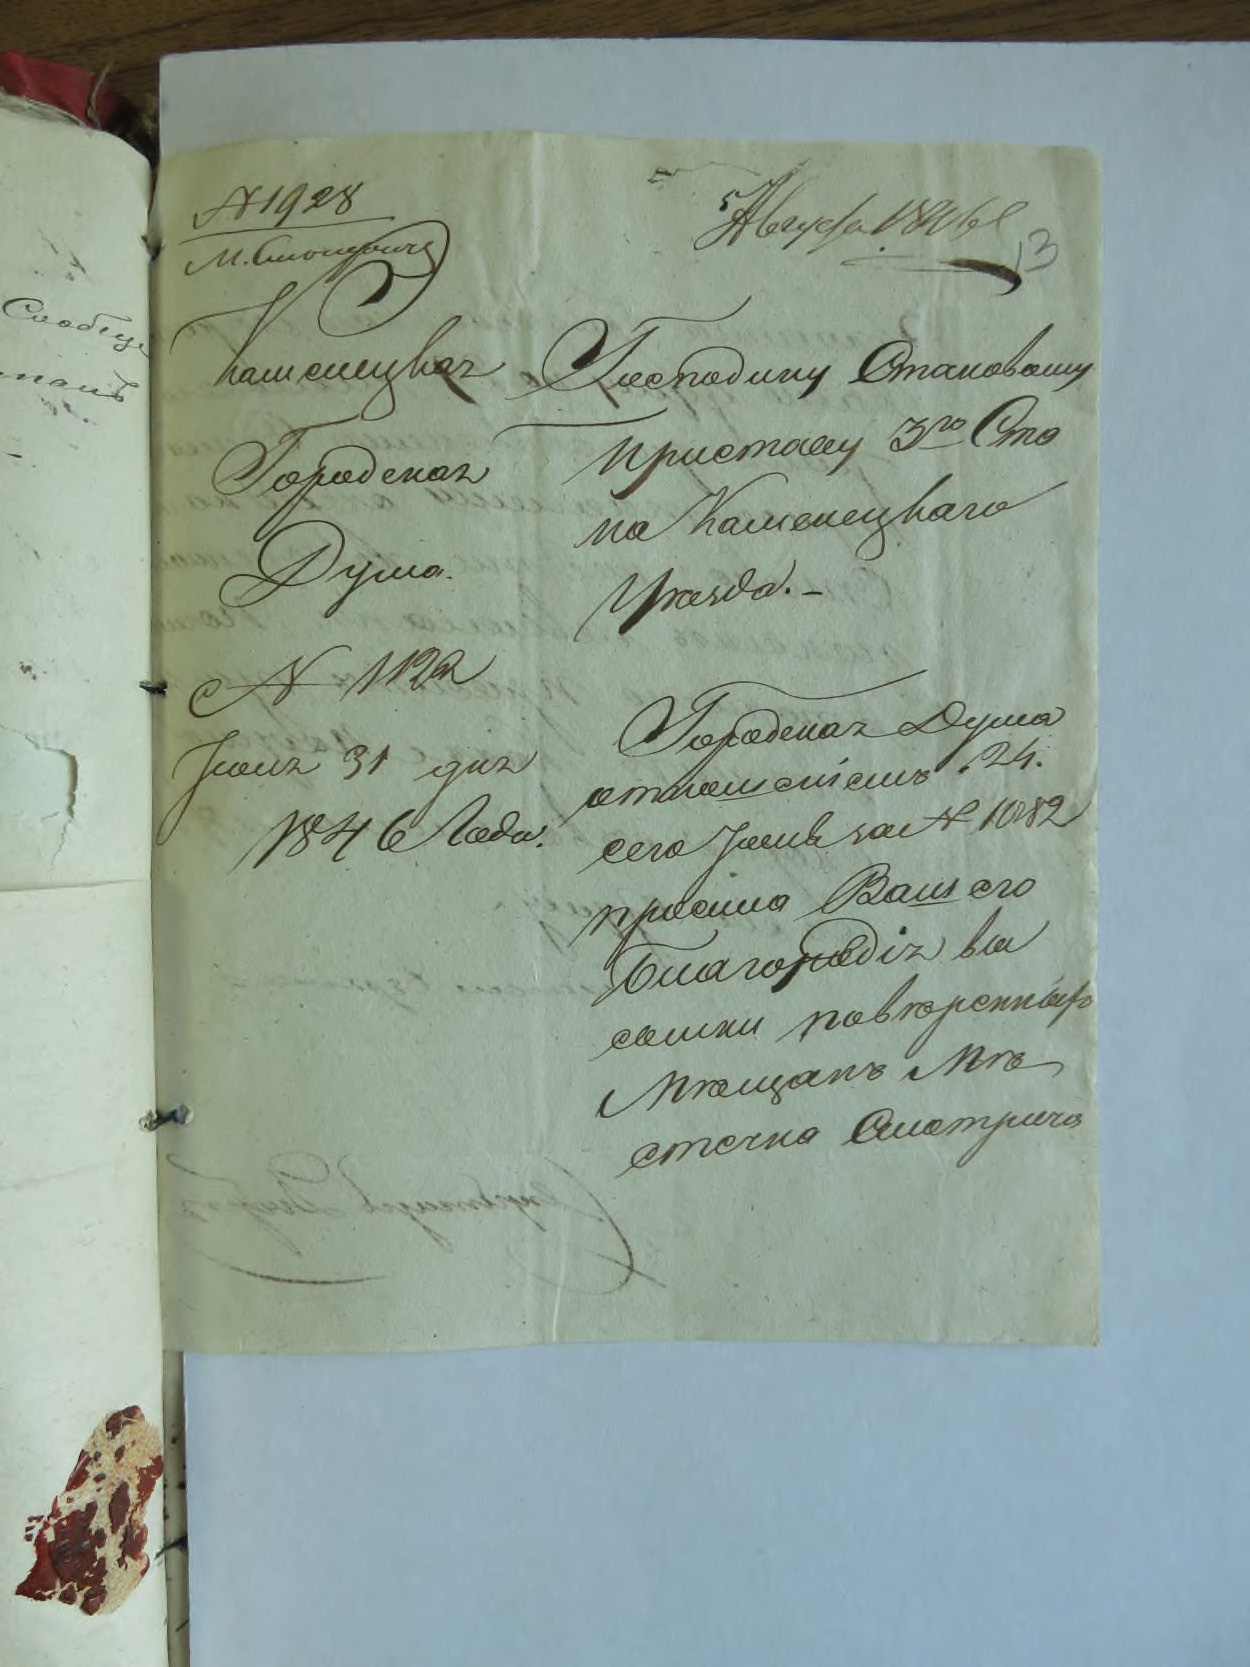 № 1928
5 Августа 1846 г
13
Каменецкая
Городская
Дума.
№ 1122
Іюля 31 дня
1846 Года.
Господину Становому
Приставу 3го Ста
на Каменецкаго
Уезда. –
Городская Дума
отношеніемъ 24.
сего Іюля за № 1082
просила Вашего
Благородія вы
слати повѣренныхъ
Мѣщанъ Мѣ
стечка Смотрича
Сообще